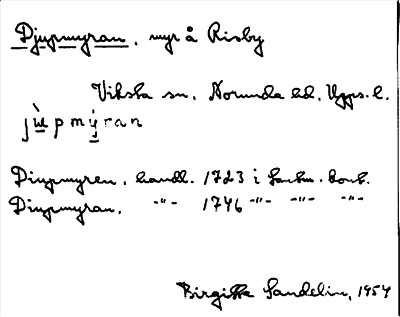 Djupmyran, myr å Risby
Viksta sn. Norunda hd. Upps. l.
jùpmýran
Diupmyren, handl. 1723 i Lantm. kont.
Diupmyran, -"- 1746 -"- -"- -"-
Birgitta Sandelin, 1954